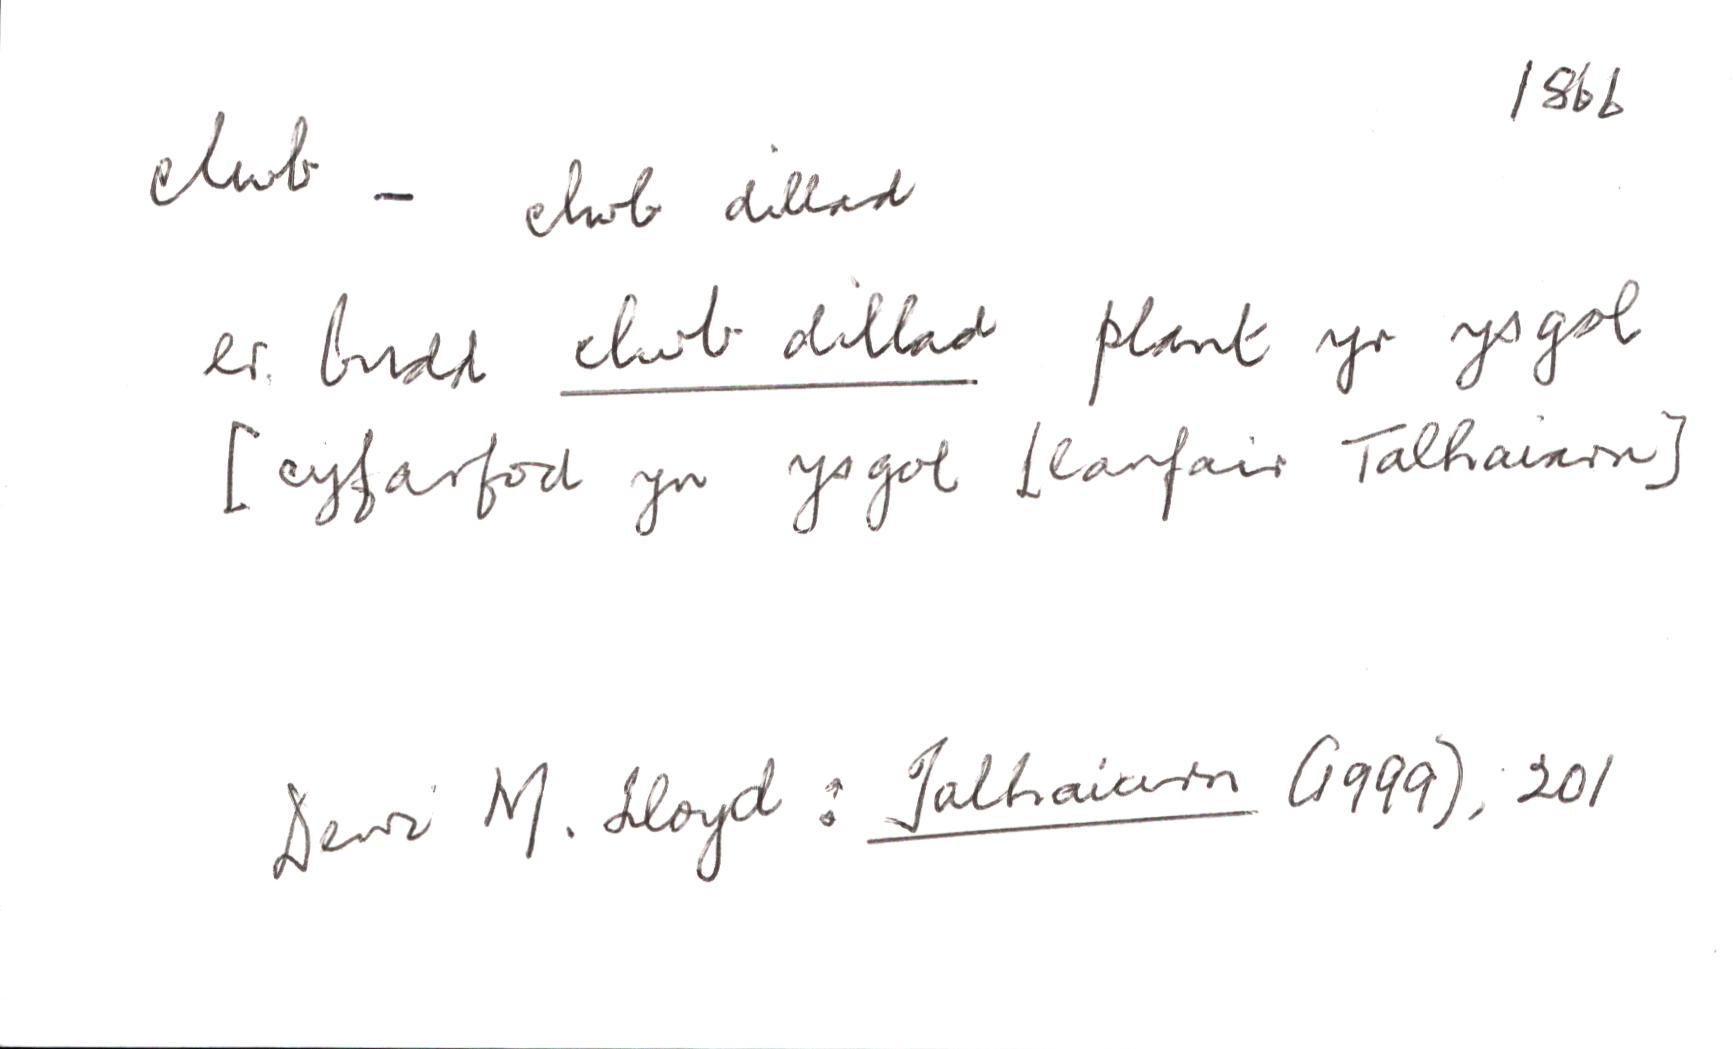 1866
clwb - clwb dillad
er budd clwb dillad plant yr ysgol
[cyfarfod yn ysgol Llanfair Talhaiarn]
Dewi M. Lloyd : Talhaiarn (1999), 201